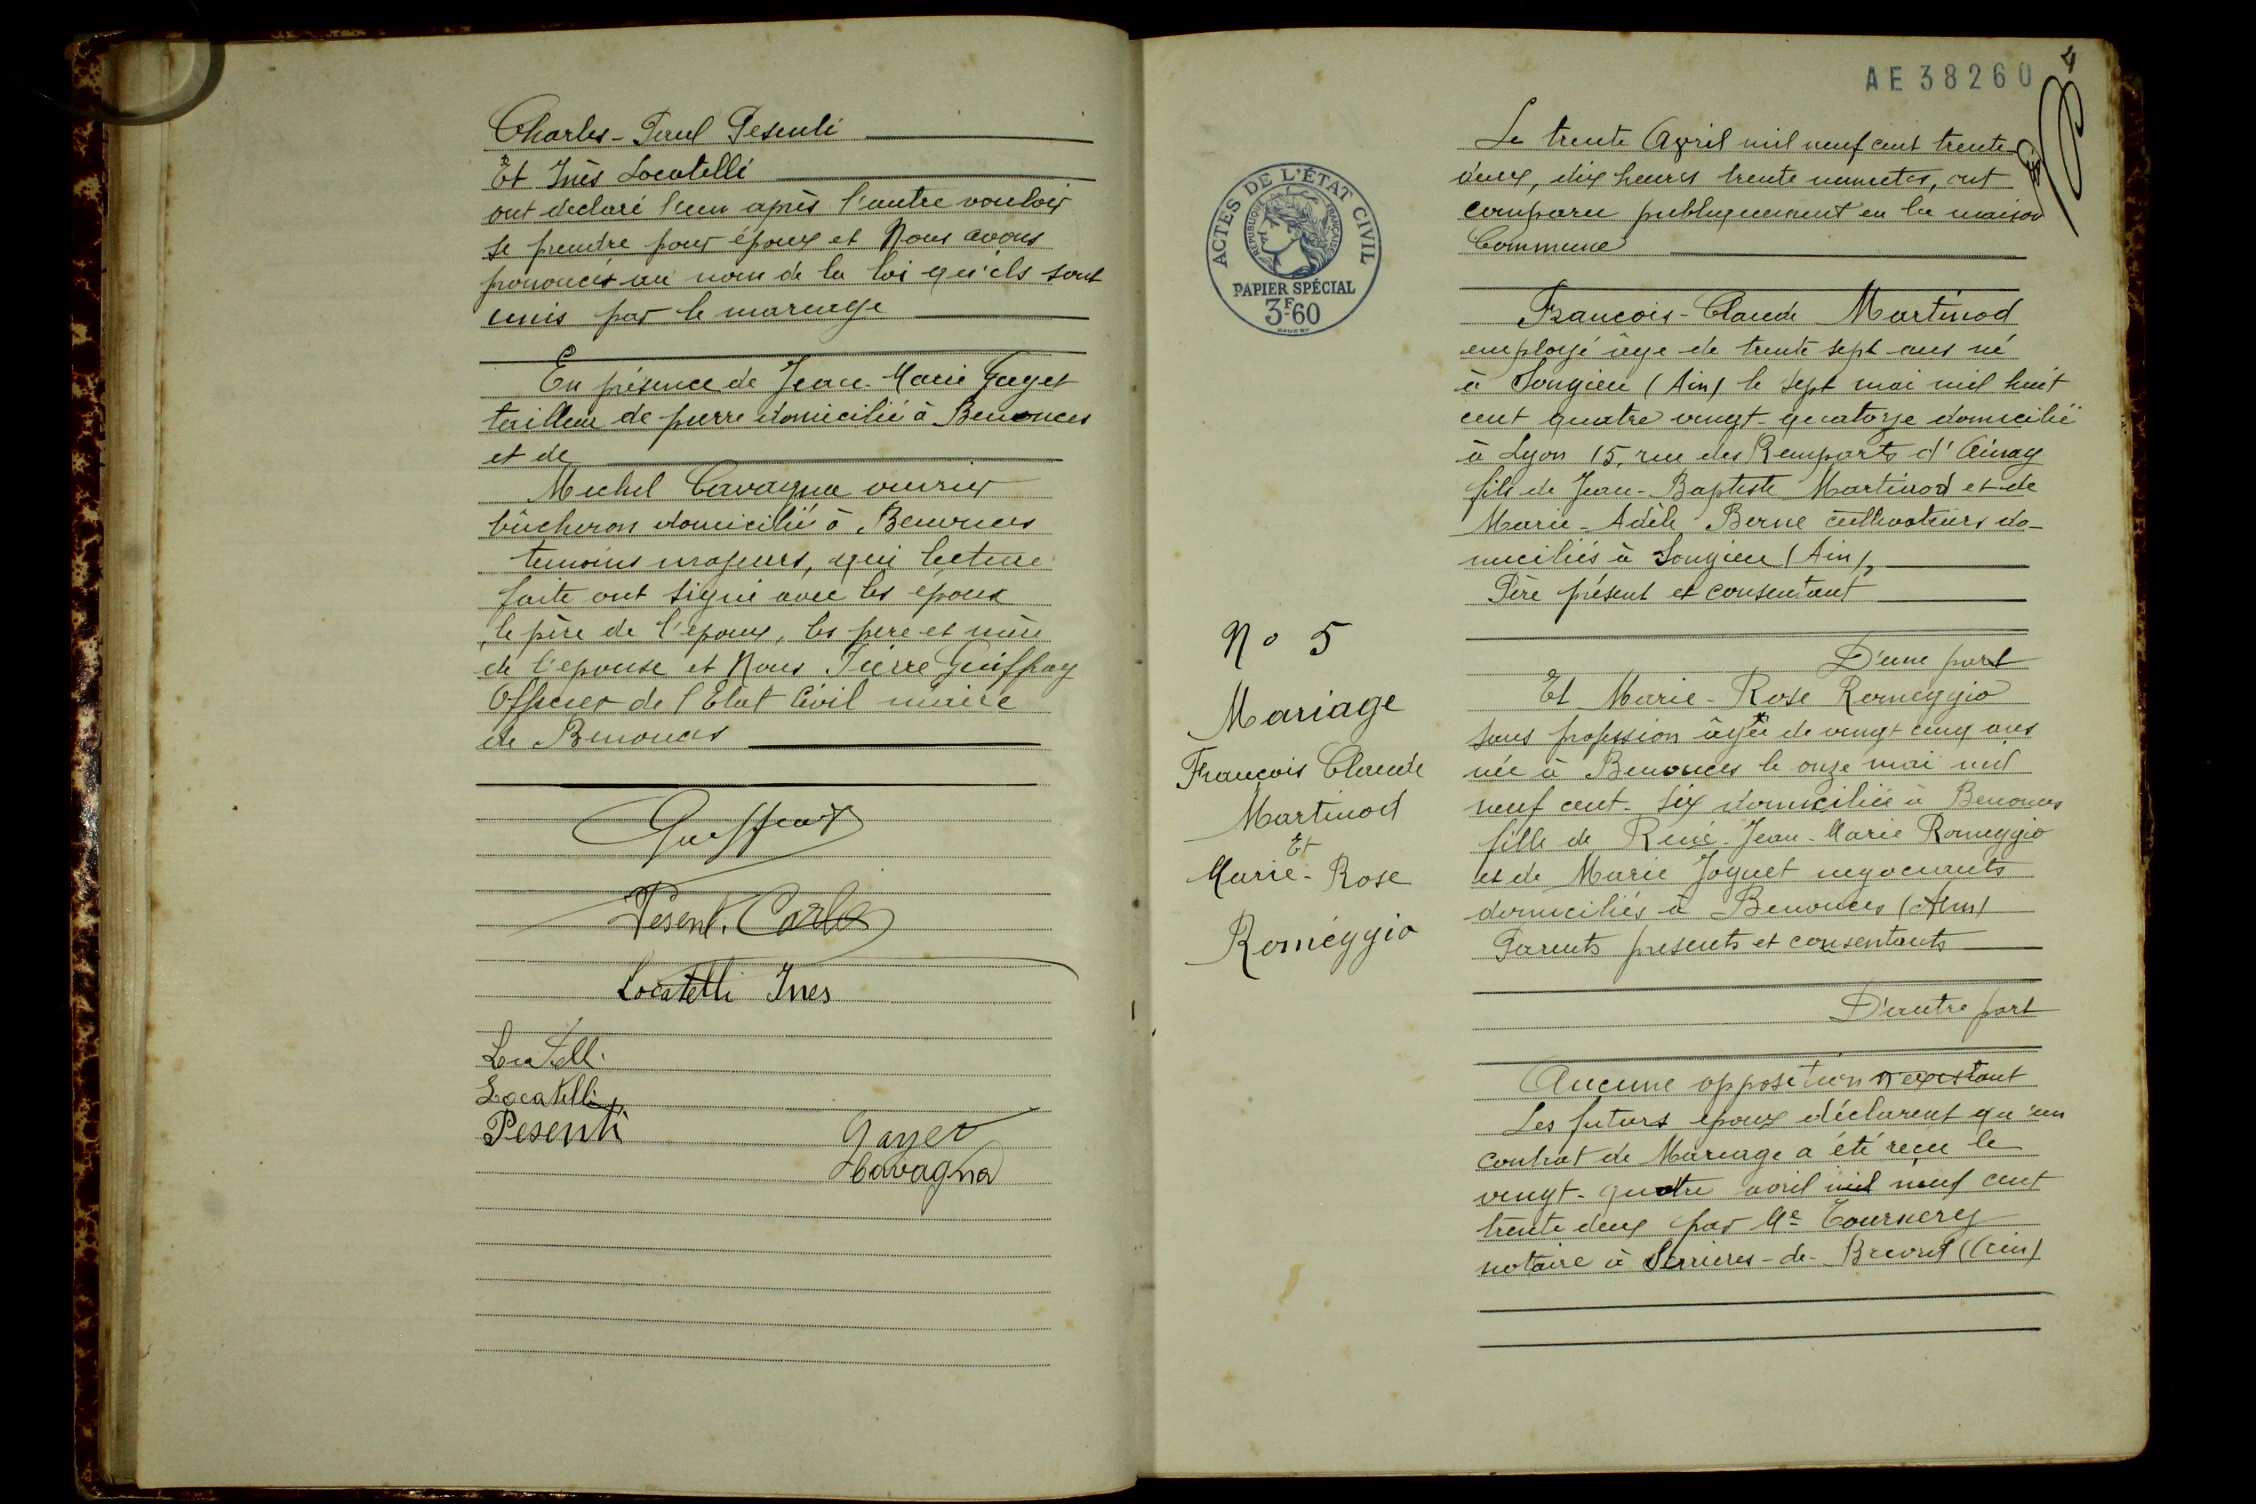 Charles-Paul Pesenti
Et Inès Locatelli
ont declaré l'un après l'autre vouloir
se prendre pour époux et Nous avons
prononcés au nom de la loi qu'ils sont
unis par le mariage
En présence de Jean-Marie Gayet
tailleur de pierre domicilié à Benonces
et de
Michel Cavagna ouvrier
bûcheron domicilié à Benonces
temoins majeurs, qui lecture
faite ont signé avec les époux
le père de l'epoux, les pere et mère
de l'epouse et Nous Pierre Guiffray
Officier de l'Etat Civil maire
de Benonces
Guiffray
Pesenti Carlo
Locatelli Ines
Locatelli
Pesenti
Gayet
Cavagna
AE 38260
4
Le trente Avril mil neuf cent trente-
deux, dix heures trente minutes, ont
comparu publiquement en la maison
Commune
ACTES DE L'ÉTAT CIVIL
RÉPUBLIQUE FRANÇAISE
PAPIER SPÉCIAL
3F60
François-Claude Martinod
employé âge de trente sept ans né
à Songieu (Ain) le sept mai mil huit
cent quatre vingt-quatorze domicilié
à Lyon 15, rue des Remparts d'Ainay
fils de Jean-Baptiste Martinod et de
Marie-Adèle Berne cultivateurs do-
miciliés à Songieu (Ain),
Père présent et consentant
D'une part
Et Marie-Rose Romeggio
sans profession âgée de vingt cinq ans
née à Benonces le onze mai mil
neuf cent-six domiciliée à Benonces
fille de René-Jean-Marie Romeggio
et de Marie Joguet negociants
domiciliés à Benonces (Ain)
Parents presents et consentants
D'autre part
Aucune opposition n'existant
Les futurs epoux déclarent qu'un
contrat de Mariage a été reçu le
vingt-quatre avril mil neuf cent
trente deux par Me Tournery
notaire à Serrieres-de-Briord (Ain)
No 5
Mariage
François Claude
Martinod
Et
Marie-Rose
Roméggio